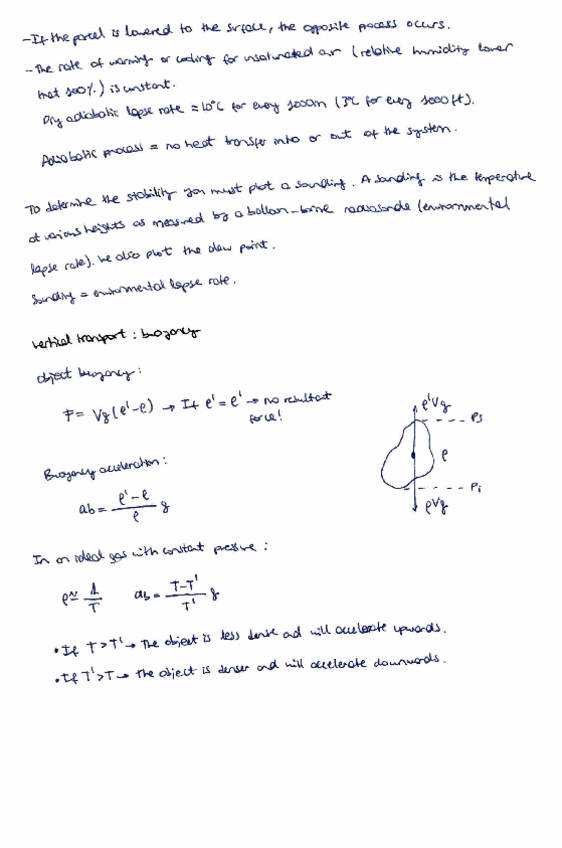 -If the parcel is lowered to the surface, the opposite process occurs.
-The rate of warming or cooling for unsaturated air (relative humidity lower
that 100%) is constant.
Dry adiabatic lapse rate = 10°C for every 1000m (3°C for every 1000ft).
Adiabatic process = no heat transfer into or out of the system.
To determine the stability you must plot a sounding. A sounding is the temperature
at various heights as measured by a balloon-borne radiosonde (environmental
lapse rate). We also plot the dew point.
Sounding = environmental lapse rate.
Vertical transport: buoyancy
Object buoyancy:
F = Vg(ρ'-ρ) → If ρ' = ρ' → no resultant
force!
ρ'Vg
Ps
ρ
Pi
ρVg
Buoyancy acceleration:
ab = (ρ'-ρ)/ρ g
In an ideal gas with constant pressure:
ρ ≈ 1/T ab = (T-T')/T' g
• If T > T' → The object is less dense and will accelerate upwards.
• If T' > T → The object is denser and will accelerate downwards.